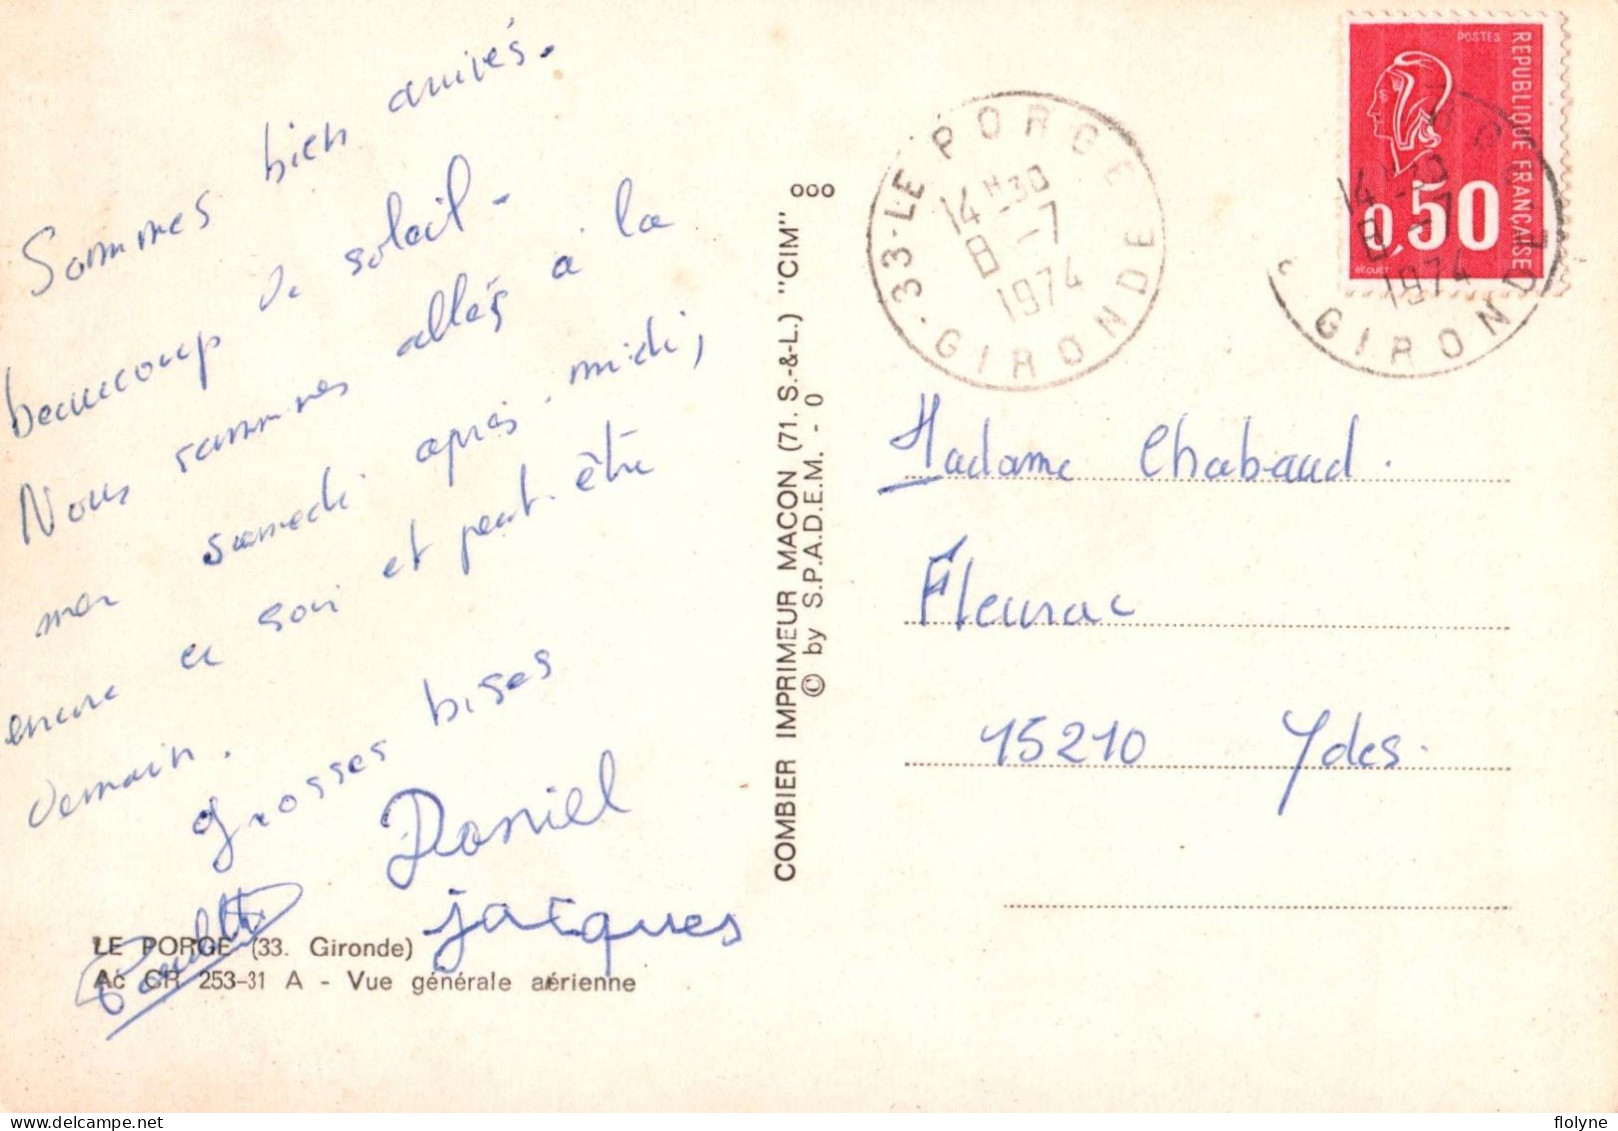 Sommes bien arrivés.
beaucoup de soleil -
Nous sommes allés à la
mer samedi après-midi,
encore ce soir et peut-être
demain.
grosses bises
Daniel
jacques
Paulette
LE PORGE (33. Gironde)
Ac CR 253-31 A - Vue générale aérienne
COMBIER IMPRIMEUR MACON (71. S.-&-L.) "CIM" ooo
© by S.P.A.D.E.M. - 0
33-LE PORGE
14H30
8 -7
1974
GIRONDE
POSTES
REPUBLIQUE FRANÇAISE
0,50
BEQUET
14H30
8 -7
1974
GIRONDE
Madame Chabaud.
Fleurac
15210 Ydes.
flolyne